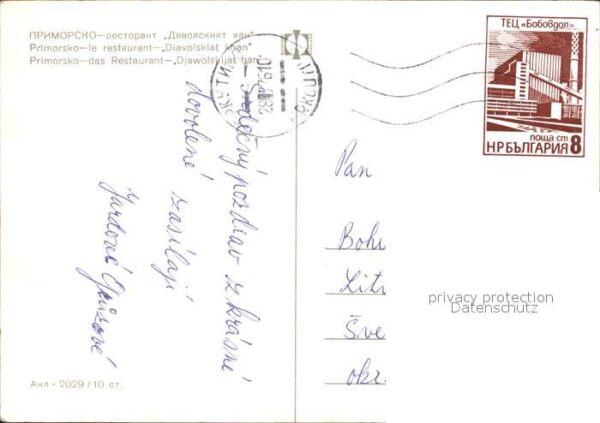 ПРИМОРСКО—ресторант „Дяволският хан"
Primorsko—le restaurant—„Diavolskiat khan"
Primorsko—das Restaurant—„Djawolskijat han"
ТЕЦ „Бобовдол"
поща ст
НР БЪЛГАРИЯ 8
Srdečný pozdrav z krásné
dovolené
zasílají
Pan
Bohu
Lit
Šve
okr.
privacy protection
Datenschutz
Акл - 2029 / 10 ст.